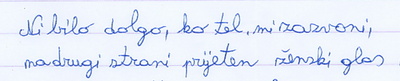 Ni bilo dolgo, ko tel. mi zazvoni,
na drugi strani prijeten ženski glas.